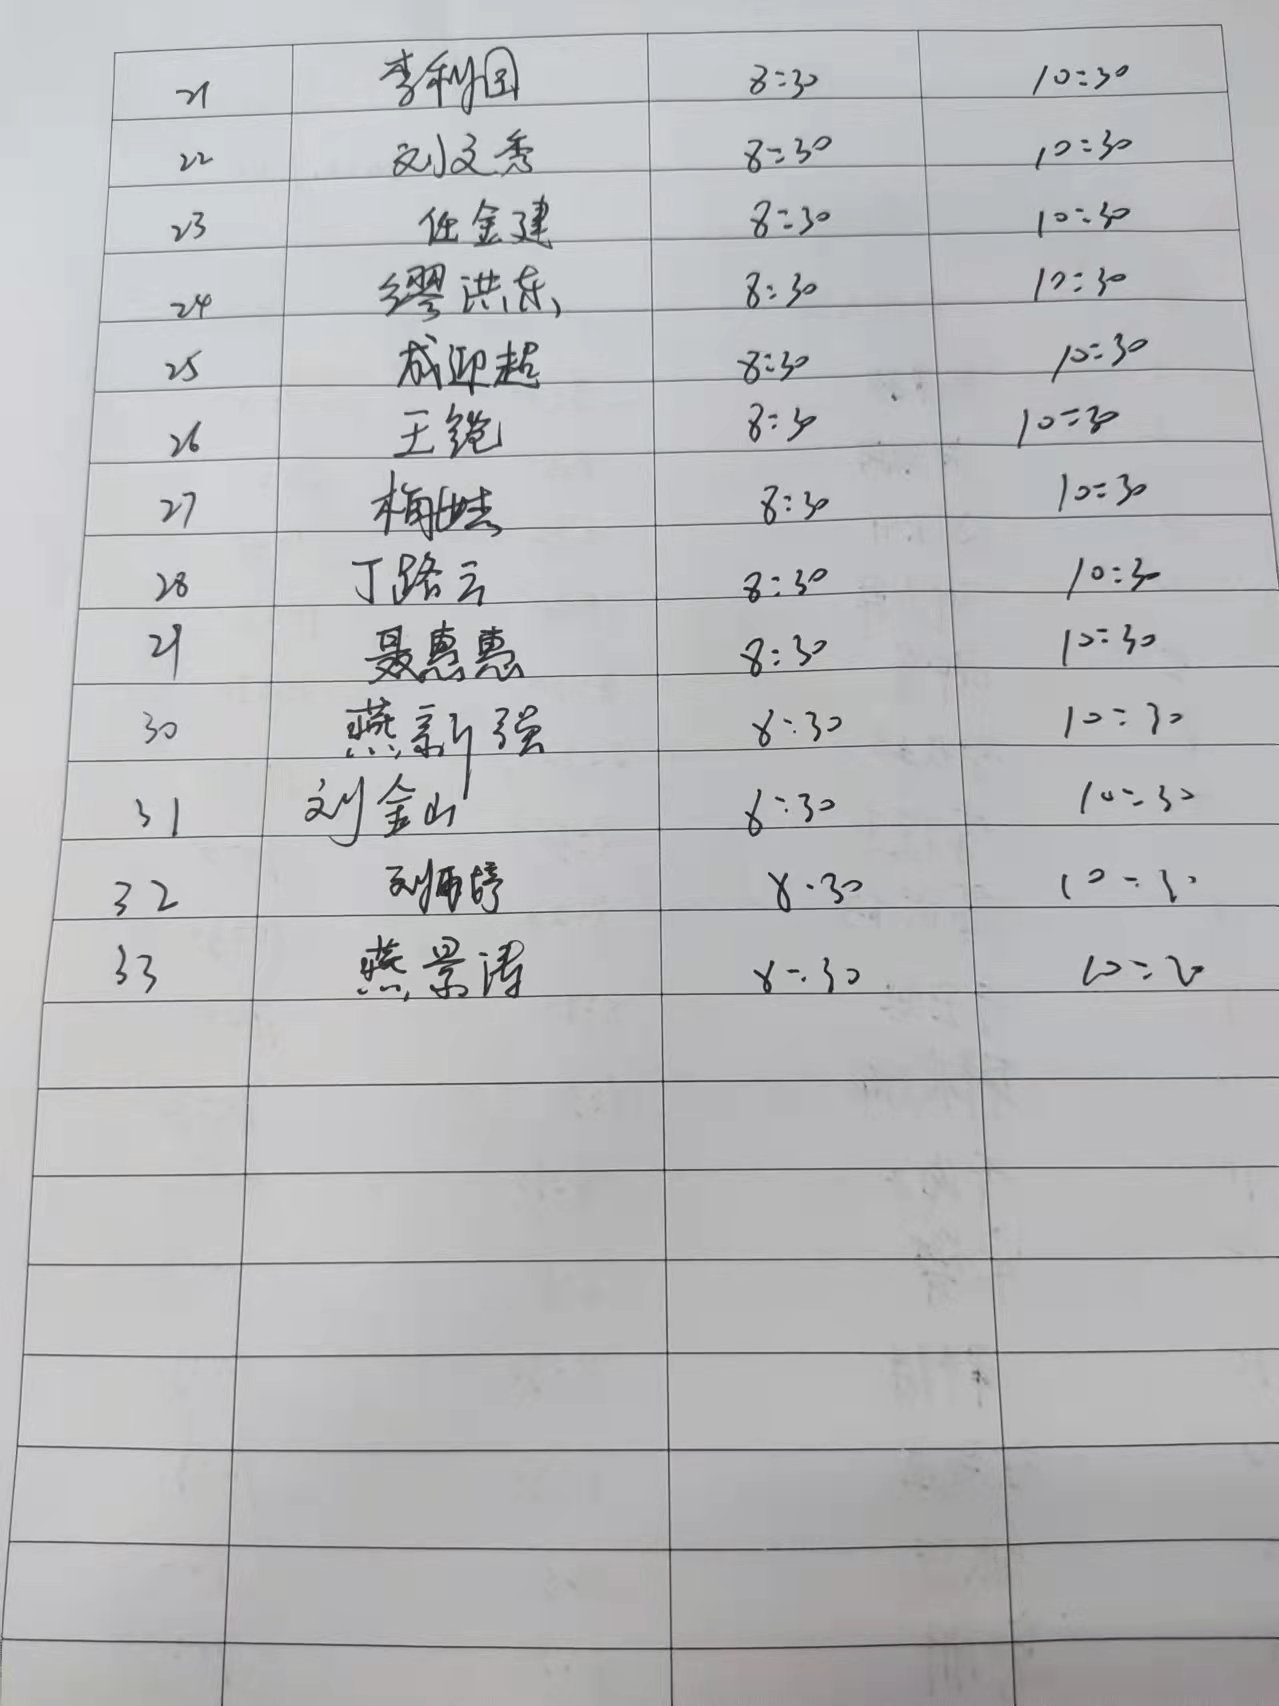 21 李利国 8:30 10:30
22 刘文秀 8:30 10:30
23 任金建 8:30 10:30
24 缪洪东 8:30 10:30
25 成迎超 8:30 10:30
26 王铠 8:30 10:30
27 梅 8:30 10:30
28 丁路云 8:30 10:30
29 聂惠惠 8:30 10:30
30 燕新强 8:30 10:30
31 刘金山 8:30 10:30
32 刘雨婷 8:30 10:30
33 燕景涛 8:30 10:20